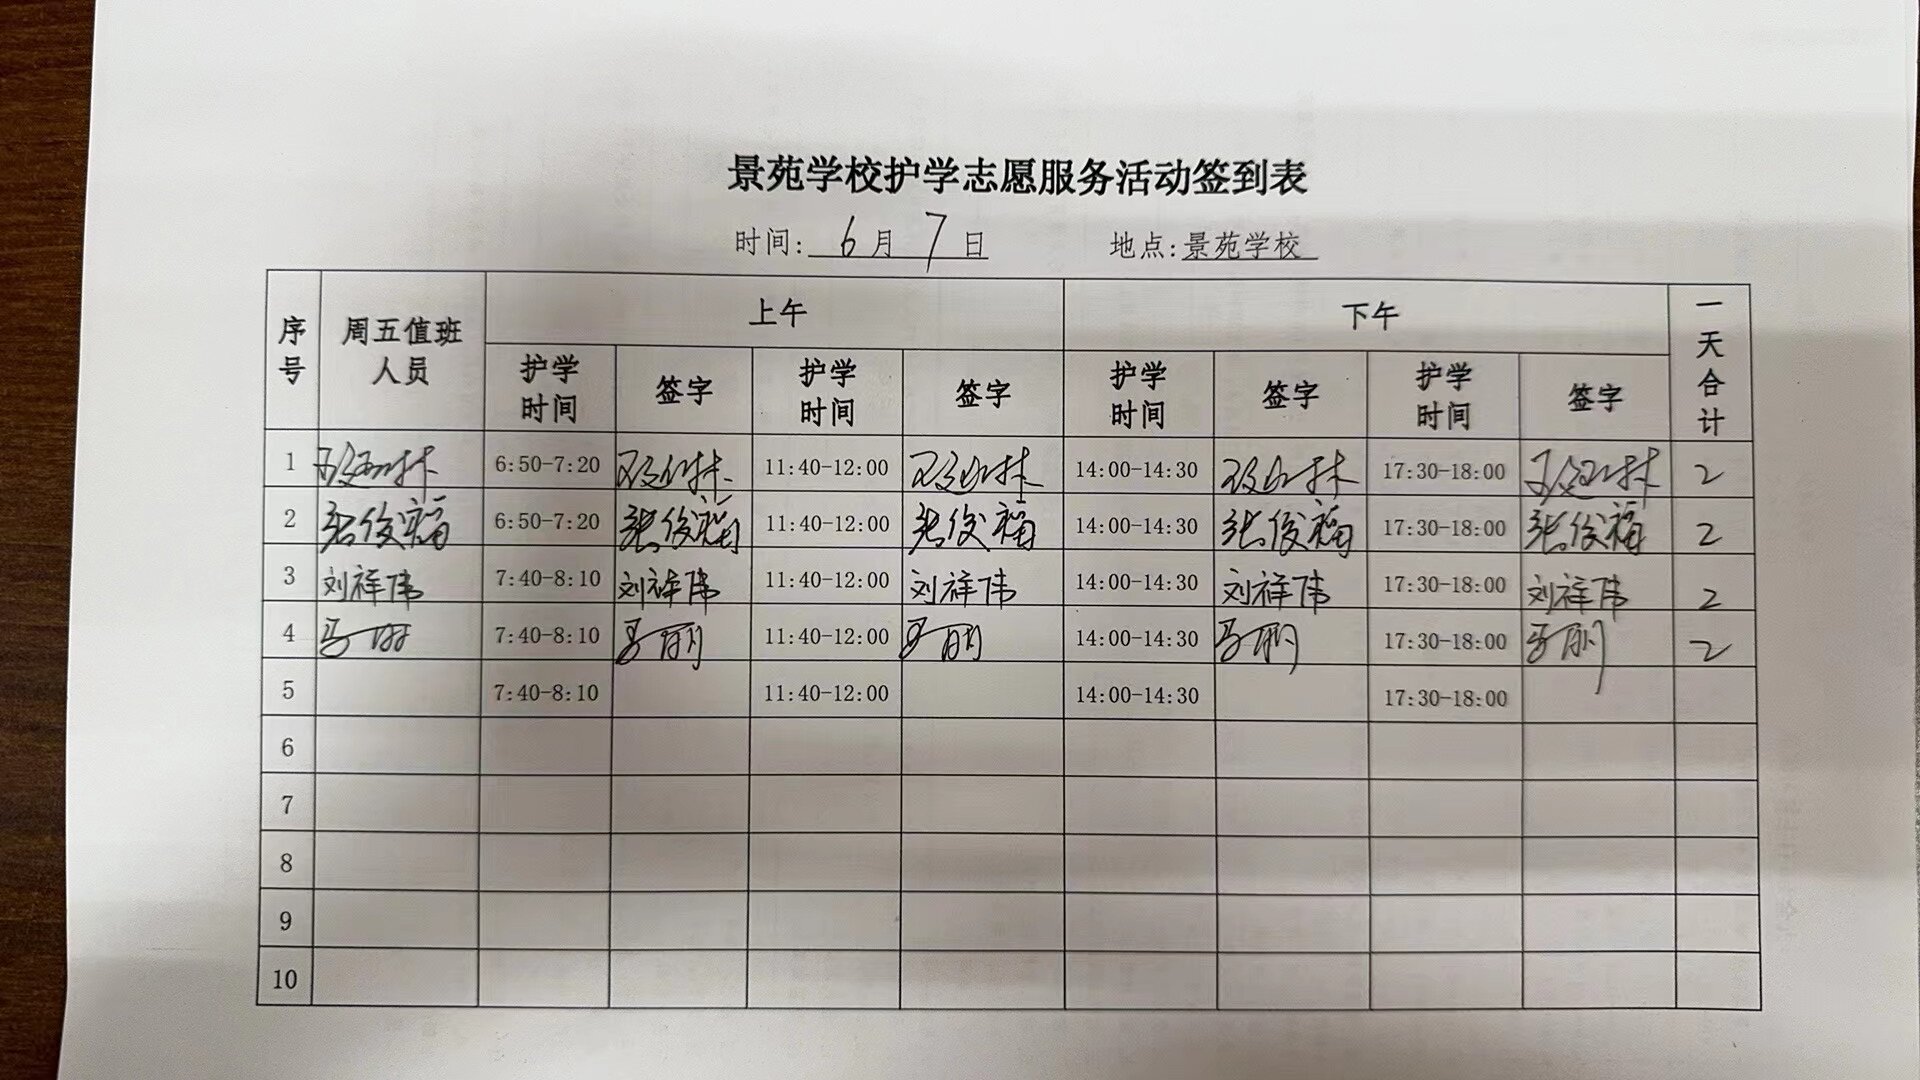 景苑学校护学志愿服务活动签到表
时间: 6月 7日 地点:景苑学校
序号 周五值班人员 上午 下午 一天合计
护学时间 签字 护学时间 签字 护学时间 签字 护学时间 签字
1 6:50-7:20 11:40-12:00 14:00-14:30 17:30-18:00 2
2 张俊福 6:50-7:20 张俊福 11:40-12:00 张俊福 14:00-14:30 张俊福 17:30-18:00 张俊福 2
3 刘祥伟 7:40-8:10 刘祥伟 11:40-12:00 刘祥伟 14:00-14:30 刘祥伟 17:30-18:00 刘祥伟 2
4 马丽 7:40-8:10 马丽 11:40-12:00 马丽 14:00-14:30 马丽 17:30-18:00 马丽 2
5 7:40-8:10 11:40-12:00 14:00-14:30 17:30-18:00
6
7
8
9
10